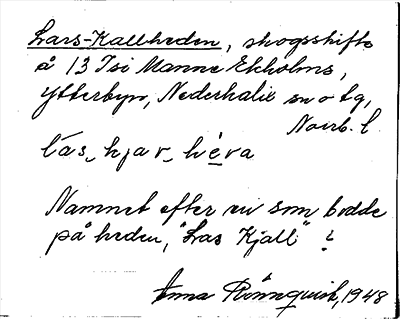 Lars-Kallheden, skogsskifte
å 13 Isi Manne Ekholms,
Ytterbyn, Nederkalix sn o tg,
Norrb. l.
las_kjav_héva
Namnet efter en som bodde
på heden, "Las Kjall" ?
Anna Rönnqvist, 1948